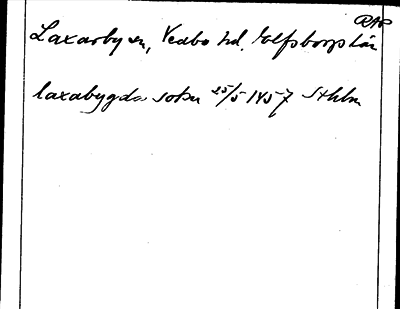 RAP
Laxarby sn, Vedbo hd. Elfsborgs län
laxabygda sokn 25/5 1457 Sthlm